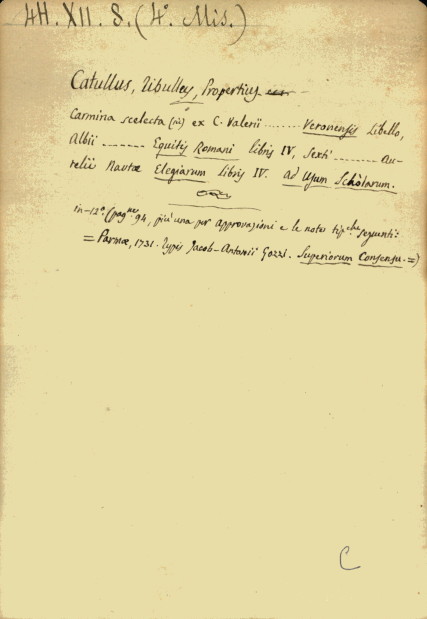 44. XII. 8. (4º. Mis.)
Catullus, Tibullus, Propertius
Carmina scelecta (sic) ex C. Valerii ....... Veronensis Libello,
Albii ------ Equitis Romani libris IV, Sexti ------ Au-
relii Nautæ Elegiarum libris IV. ad Usum Scholarum.
in-12º. (pagne 94, più una per approvazioni e le note tipche seguenti:
= Parmæ, 1731. Typis Jacob-Antonii Gozzi. Superiorum Consensu. =)
C